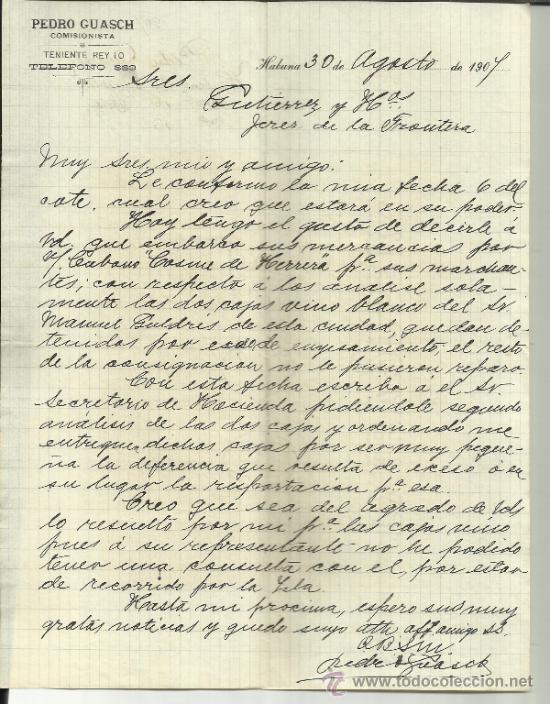 PEDRO GUASCH
COMISIONISTA
TENIENTE REY 10
TELEFONO 883
Habana 30 de Agosto de 1907
Sres.
Gutiérrez y Hos.
Jerez de la Frontera
Muy Sres. mio y amigo:
Le confirmo la mia fecha 6 del
cote, cual creo que estará en su poder.
Hoy tengo el gusto de decirle á
Vd. que embarco sus mercancias por
v/ Cubano "Cosme de Herrera" pa. sus marchan-
tes; con respecto á los análise sola-
mente las dos cajas vino blanco del Sr.
Manuel de esta ciudad, quedan de-
tenidas por de enyesamiento, el resto
de la consignacion no le pusieron reparo.
Con esta fecha escribo a el Sr.
Secretario de Hacienda pidiendole segundo
análisis de las dos cajas y ordenando me
entregue dichas cajas por ser muy peque-
ña la diferencia que resulta de exeso ó en
su lugar la resportacion pa. esa.
Creo que sea del agrado de Vds
lo resuelto por mi pa. las cajas vino
pues á su representante no he podido
tener una consulta con el, por estar
de recorrido por la Ysla.
Hasta mi procsima, espero sus muy
gratas noticias y quedo suyo atto aff. amigo SS.
Q B S M
Pedro Guasch
todocoleccion.net